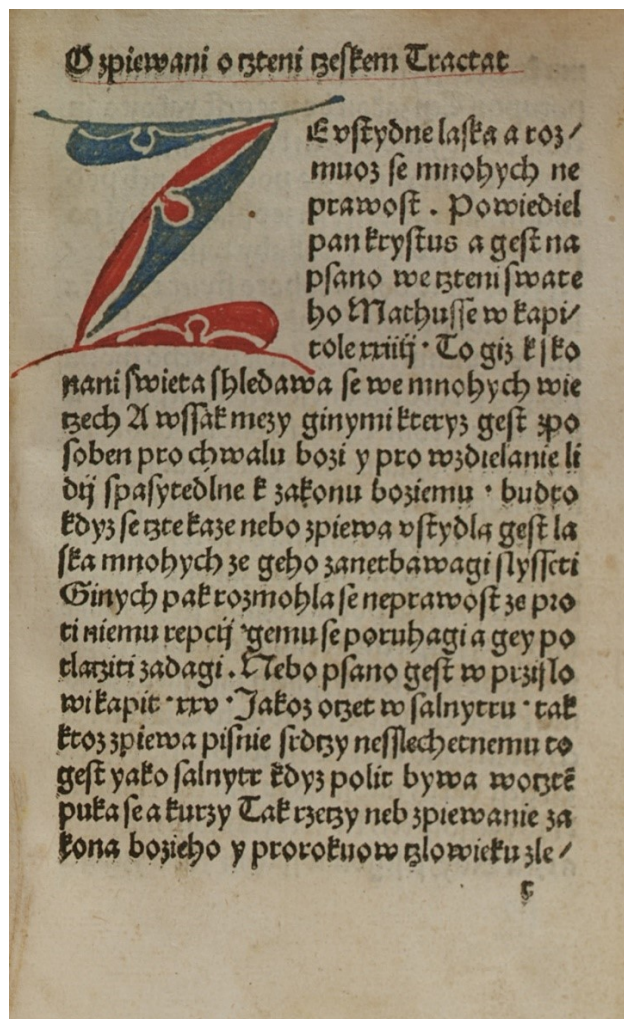 O zpiewani o czteni czeskem Tractat
ZE vstydne laska a roz/
muoz se mnohych ne
prawost . Powiediel
pan krystus a gest na
psano we czteni swate
ho Mathusse w kapi/
tole xxiiij · To giz k sko
nani swieta shledawa se we mnohych wie
czech A wssak mezy ginymi kteryz gest zpo
soben pro chwalu bozi y pro wzdielanie li
dij spasytedlne k zakonu boziemu · budto
kdyz se czte kaze nebo zpiewa vstydla gest la
ska mnohych ze geho zanetbawagi slysseti
Ginych pak rozmohla se neprawost ze pro
ti niemu repcij gemu se poruhagi a gey po
tlacziti zadagi . Nebo psano gest w przislo
wi kapit · xxv · Jakoz oczet w salnytru · tak
ktoz zpiewa pisnie srdczy nesslechetnemu to
gest yako salnytr kdyz polit bywa woctē
puka se a kurzy Tak rzeczy neb zpiewanie za
kona bozieho y prorokuow czlowieku zle /
c